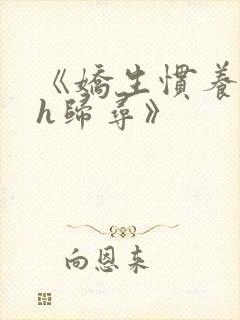 《嬌生慣養
h歸尋》
向恩来